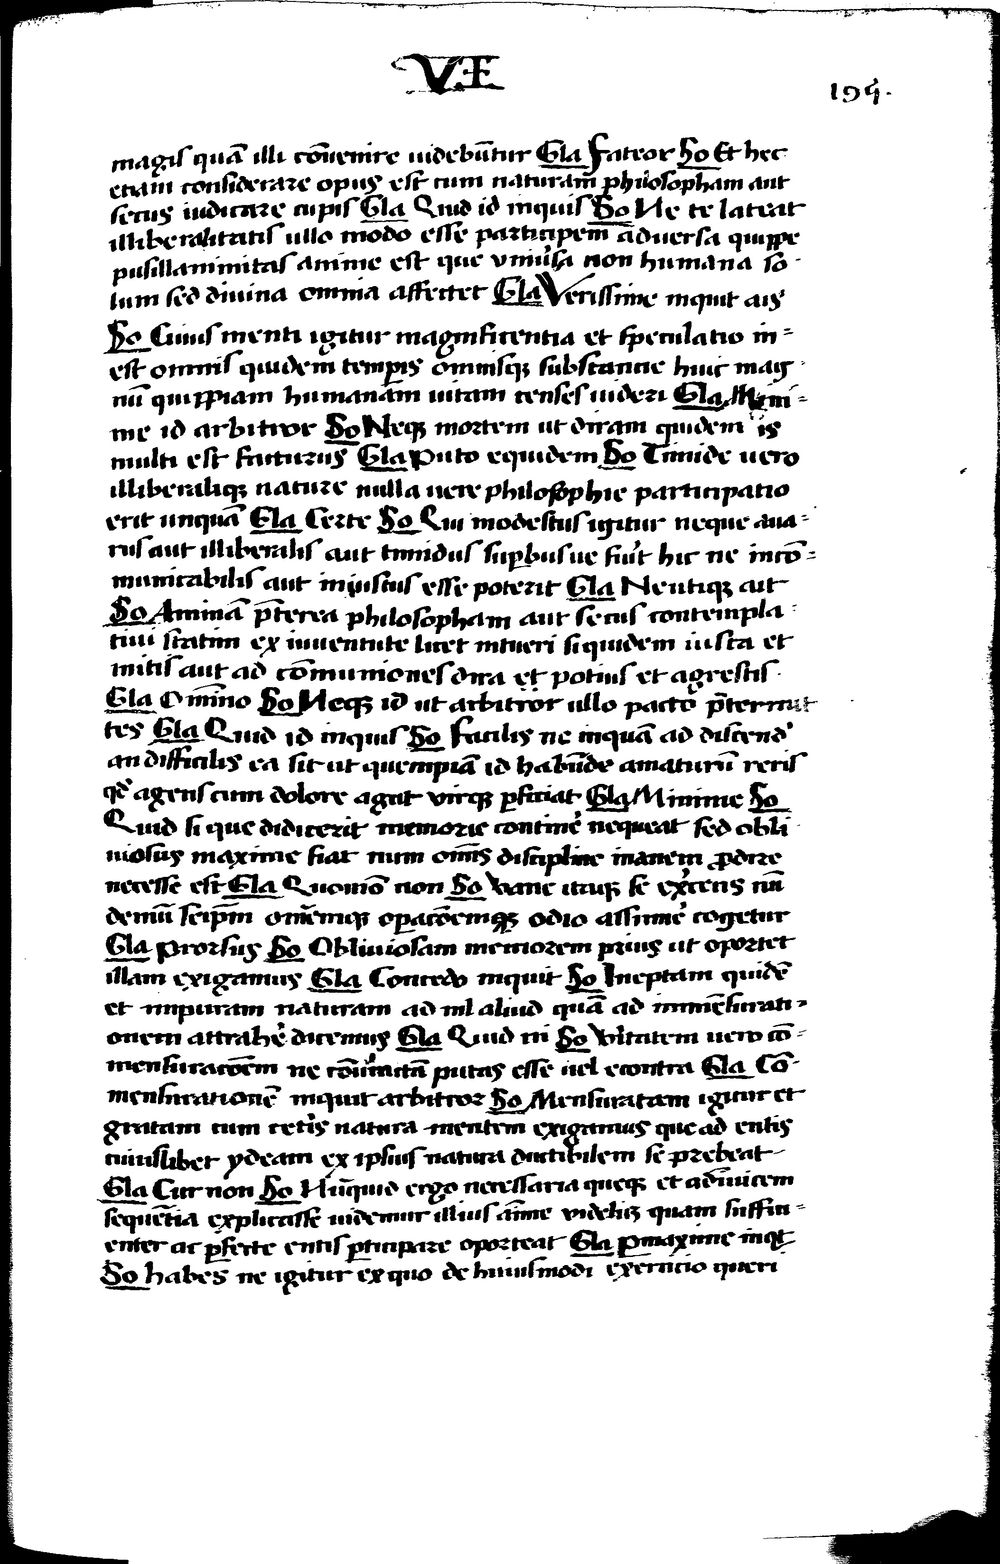 VI
195.
magis quā illi cōuenire uidebūtur Gla Fateor So Et hec
etiam considerare opus est cum naturam philosopham aut
secus iudicare cupis Gla Quid id inquis So Ne te lateat
illiberalitatis ullo modo esse participem aduersa quippe
pusillanimitas anime est que uniūsa non humana so
lum sed diuina omnia affectet Gla Verissime inquit ais
So Cuius menti igitur magnificentia et speculatio in-
est omnis quidem temp̄is omnisq substantie huic mag
nū quippiam humanam uitam censes uideri Gla Mini-
me id arbitror So Neq mortem ut diram quidem is
multi est facturus Gla Puto equidem So Timide uero
illiberaliq nature nulla uere philosophie participatio
erit unquā Gla Certe So Qui modestus igitur neque aua-
rus aut illiberalis aut timidus sup̄busue fuīt hic ne incō-
municabilis aut iniustus esse poterit Gla Neutiq ait
So Animā p̄terea philosopham aut secus contempla-
tiui statim ex iuuentute licet intueri siquidem iusta et
mitis aut ad cōmuniones dira et potius et agrestis
Gla Omīno So Neq id ut arbitror ullo pacto p̄termit
tes Gla Quid id inquis So Facilis ne inquā ad discend
an difficilis ea sit ut quempiā id habūde amaturū reris
qd agens cum dolore agat uixq p̄ficiat Gla Minime So
Quid si que didicerit memorie continē nequeat sed obli
uiosus maxime fiat num om̄is discipline inanem p̄dire
necesse est Gla Quomō non So Vane itaq se ex̄cens nū
demū seip̄m om̄emq op̄acōemq odio assumē cogetur
Gla Prorsus So Obliuiosam memorem prius ut oportet
illam exigamus Gla Concedo inquit So Ineptam quidē
et impuram naturam ad nl aliud quā ad immēsurati-
onem attrahē dicemus Gla Quid ni So Vītatem uero cō-
mensuracōem ne cōiunctā putas esse uel econtra Gla Cō-
mensurationē inquit arbitror So Mensuratam igitur et
gratam cum cetīs natura mentem exigamus que ad entis
cuiuslibet ydeam ex ipsius natura ductibilem se prebeat
Gla Cur non So Nūquid ergo necessaria queq et adīuicem
sequētia explicasse uidemur illius āme uidelicȝ quam suffici-
enter ac p̄fecte entis p̄ticipare oporteat Gla Pmaxime inqt
So habes ne igitur ex quo de huiusmodi exercicio queri